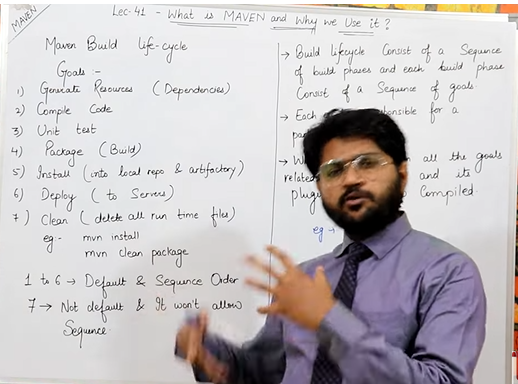 MAVEN
Lec-41 - What is MAVEN and Why we Use it ?
Maven Build life-cycle
Goals :-
1) Generate Resources (Dependencies)
2) Compile Code
3) Unit test
4) Package (Build)
5) Install (into local repo & artifactory)
6) Deploy ( to Servers)
7) Clean ( delete all run time files)
eg:- mvn install
mvn clean package
1 to 6 → Default & Sequence Order
7 → Not default & It won't allow
Sequence
→ Build lifecycle Consist of a Sequence
of build phases and each build phase
Consist of a Sequence of goals
→ Each for a
all the goals
related and its
Compiled.
eg →